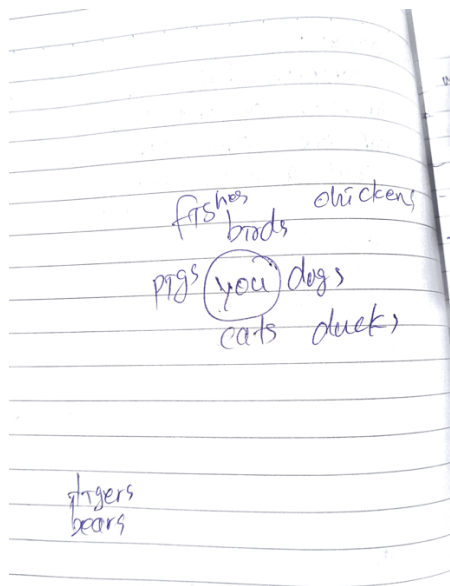 fishes chickens
birds
pigs you dogs
cats ducks
tigers
bears